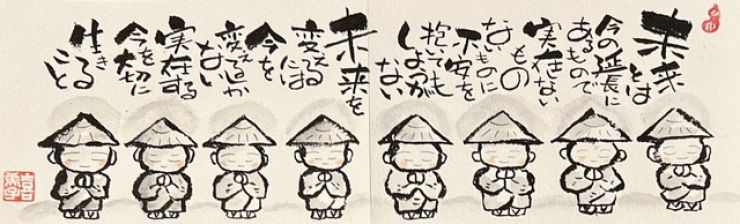 未来とは
今の延長に
あるもので
実在ない
もの
ないものに
不安を
抱いても
しょうが
ない
未来を
変える
には
今を
変えるしか
ない
実在する
今を大切に
生きる
こと